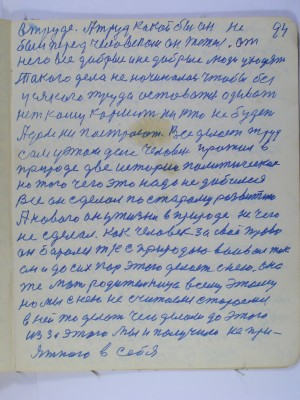 в труде. А труд какой бы он не 94
был перед человеком он тяжел, от
него все добрые и не добрые люди уходят
Такого дела не начиналось чтобы без
всякого труда оставаться одевать
нет кому кормить никто не будет
А дом не построит. Все делает труд
сам уже на деле человек прожил в
природе две истории политическая
но того чего это надо не добился
Все он сделал по старому развитию
А нового он у жизни в природе ничего
не сделал. Как человек за своё тугово
он боролся с природою воевал так
он и до сих пор этого делает с нею, она
же мать родительница всему этому
но мы с нею не считаемся стараемся
в ней то делать чего делали до этого
из за этого мы и получили непри-
ятного в себя